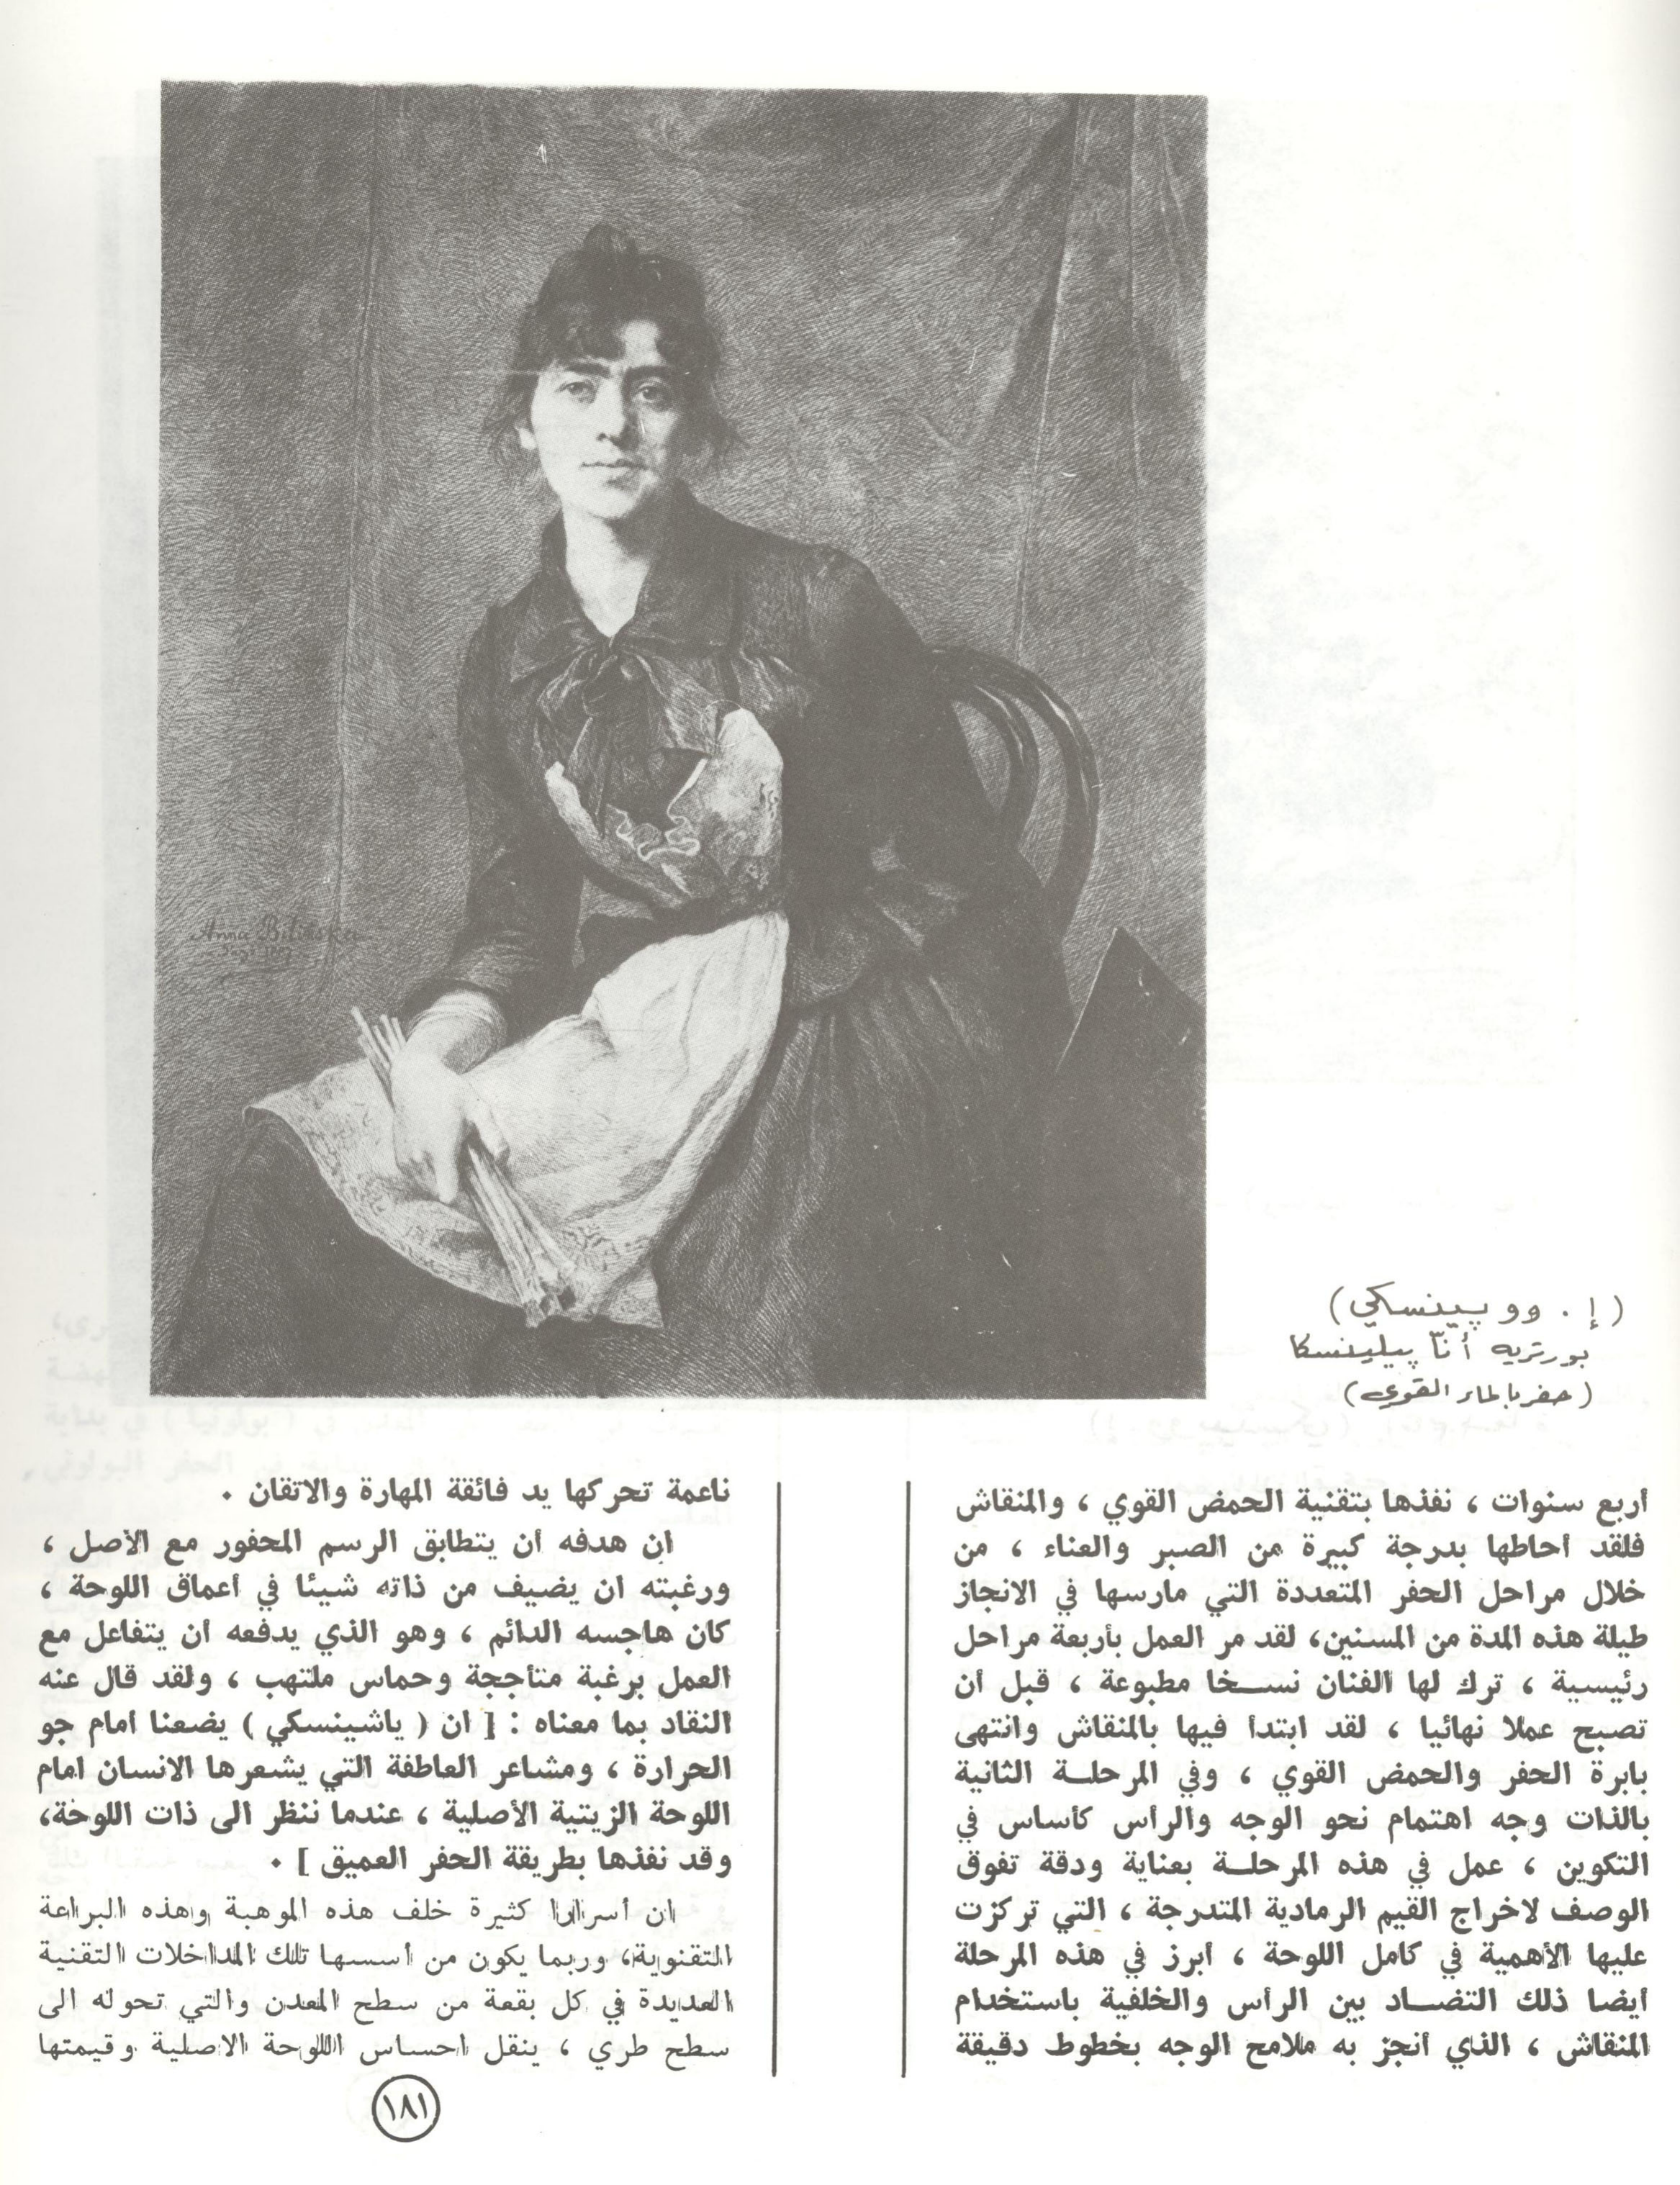 Anna Bilińska
( إ . وو پينسكي )
بورتريه أنّا پيلينسكا
( حفر بالماء القوي )
أربع سنوات ، نفذها بتقنية الحمض القوي ، والمنقاش
فلقد أحاطها بدرجة كبيرة من الصبر والعناء ، من
خلال مراحل الحفر المتعددة التي مارسها في الانجاز
طيلة هذه المدة من المسنين، لقد مر العمل بأربعة مراحل
رئيسية ، ترك لها الفنان نسخا مطبوعة ، قبل أن
تصبح عملا نهائيا ، لقد ابتدأ فيها بالمنقاش وانتهى
بابرة الحفر والحمض القوي ، وفي المرحلة الثانية
بالذات وجه اهتمام نحو الوجه والرأس كأساس في
التكوين ، عمل في هذه المرحلة بعناية ودقة تفوق
الوصف لاخراج القيم الرمادية المتدرجة ، التي تركزت
عليها الأهمية في كامل اللوحة ، أبرز في هذه المرحلة
أيضا ذلك التضاد بين الرأس والخلفية باستخدام
المنقاش ، الذي أنجز به ملامح الوجه بخطوط دقيقة
ناعمة تحركها يد فائقة المهارة والاتقان .
ان هدفه أن يتطابق الرسم المحفور مع الأصل ،
ورغبته ان يضيف من ذاته شيئا في أعماق اللوحة ،
كان هاجسه الدائم ، وهو الذي يدفعه أن يتفاعل مع
العمل برغبة متأججة وحماس ملتهب ، ولقد قال عنه
النقاد بما معناه : [ ان ( ياشينسكي ) يضعنا أمام جو
الحرارة ، ومشاعر العاطفة التي يشعرها الانسان امام
اللوحة الزيتية الأصلية ، عندما ننظر الى ذات اللوحة،
وقد نفذها بطريقة الحفر العميق ] .
ان أسرارا كثيرة خلف هذه الموهبة وهذه البراعة
التقنوية، وربما يكون من أسسها تلك المداخلات التقنية
العديدة في كل بقعة من سطح المعدن والتي تحوله الى
سطح طري ، ينقل احساس اللوحة الاصلية وقيمتها
١٨١